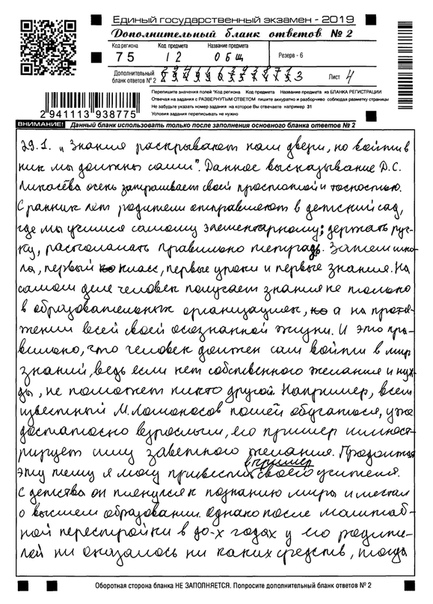 Единый государственный экзамен - 2019
Дополнительный бланк ответов № 2
Код региона Код предмета Название предмета
75 12 ОБЩ Резерв - 6
Дополнительный бланк ответов № 2 Лист 4
Перепишите значения полей "Код региона", "Код предмета", "Название предмета" из БЛАНКА РЕГИСТРАЦИИ
Отвечая на задания с РАЗВЕРНУТЫМ ОТВЕТОМ, пишите аккуратно и разборчиво, соблюдая разметку страницы
Не забудьте указать номер задания, на которое Вы отвечаете, например, 31
Условия задания переписывать не нужно
2941113938775
ВНИМАНИЕ! Данный бланк использовать только после заполнения основного бланка ответов № 2
29.1. "Знания раскрывают нам двери, но войти в
них мы должны сами". Данное высказывание Д.С.
Лихачева очень завораживает своей простотой и точностью.
С ранних лет родители отправляют в детский сад,
где мы учимся самому элементарному: держать руч-
ку, располагать правильно тетрадь. Затем шко-
ла, первый класс, первые уроки и первые знания. На
самом деле человек получает знания не только
в образовательных организациях, а на протя-
жении всей своей осознанной жизни. И это пра-
вильно, что человек должен сам войти в мир
знаний, ведь если нет собственного желания и нуж-
ды, не поможет никто другой. Например, всем
известный М. Ломоносов пошел обучаться, уже
достаточно взрослым, его пример иллюст-
рирует силу заветного желания. Продолжая
эту тему я могу привести в пример своего учителя.
С детства он тянулся к познанию мира и мечтал
о высшем образовании. Однако после масштаб-
ной перестройки в 90-х годах у его родите-
лей ни оказалось ни каких средств, тогда
Оборотная сторона бланка НЕ ЗАПОЛНЯЕТСЯ. Попросите дополнительный бланк ответов № 2